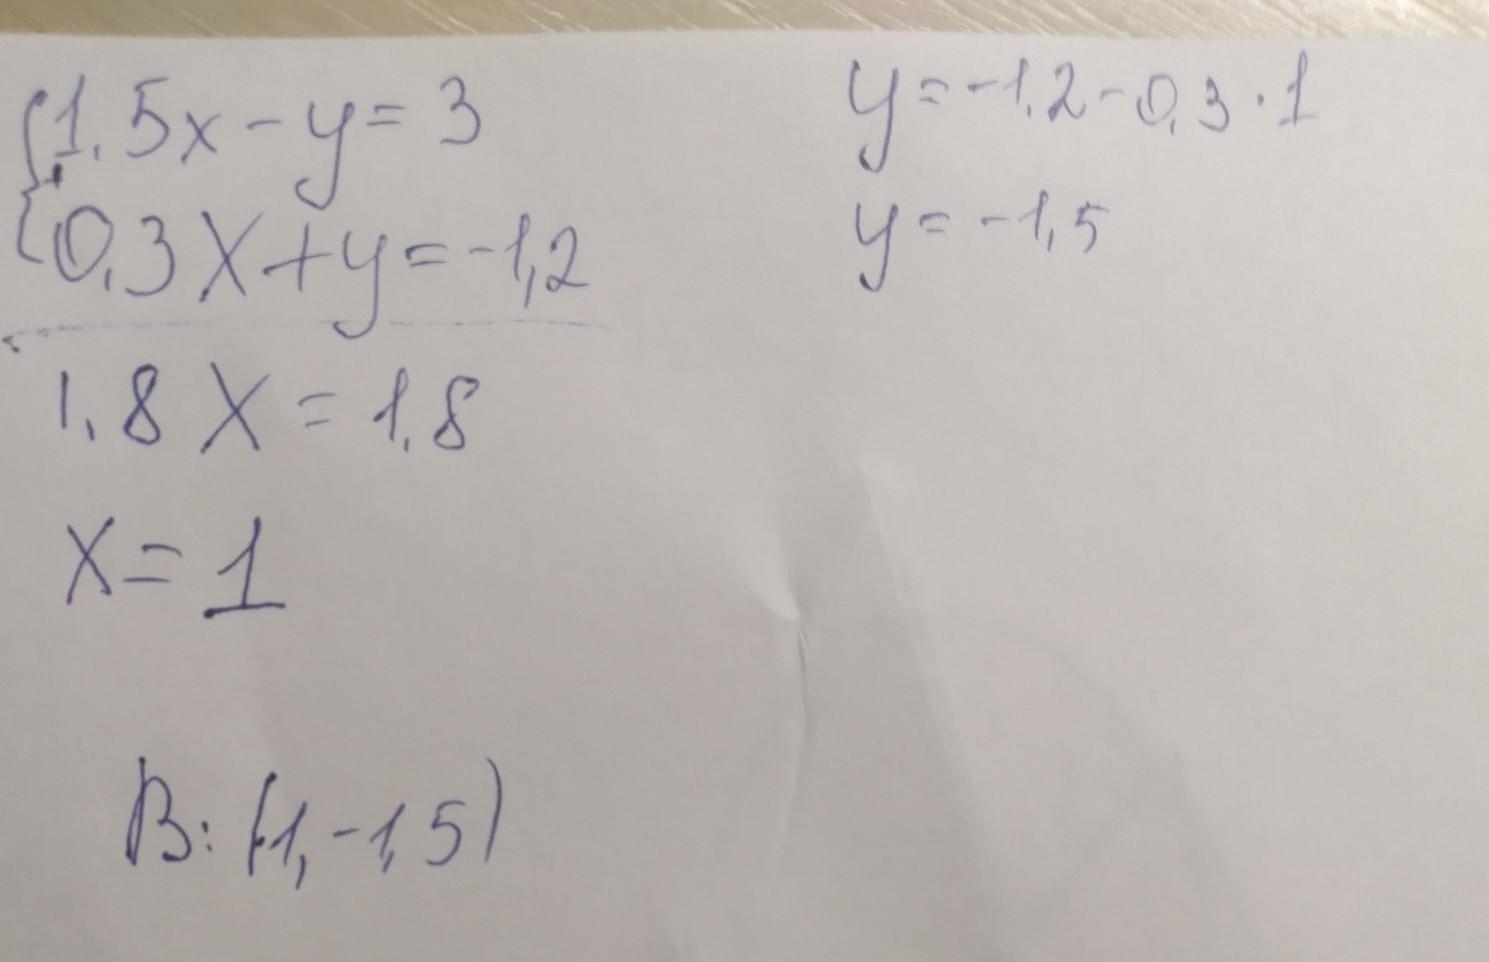 1.5x - y = 3
0.3x + y = -1,2
1.8x = 1.8
x = 1
y = -1.2 - 0.3 · 1
y = -1,5
B: (1, -1,5)